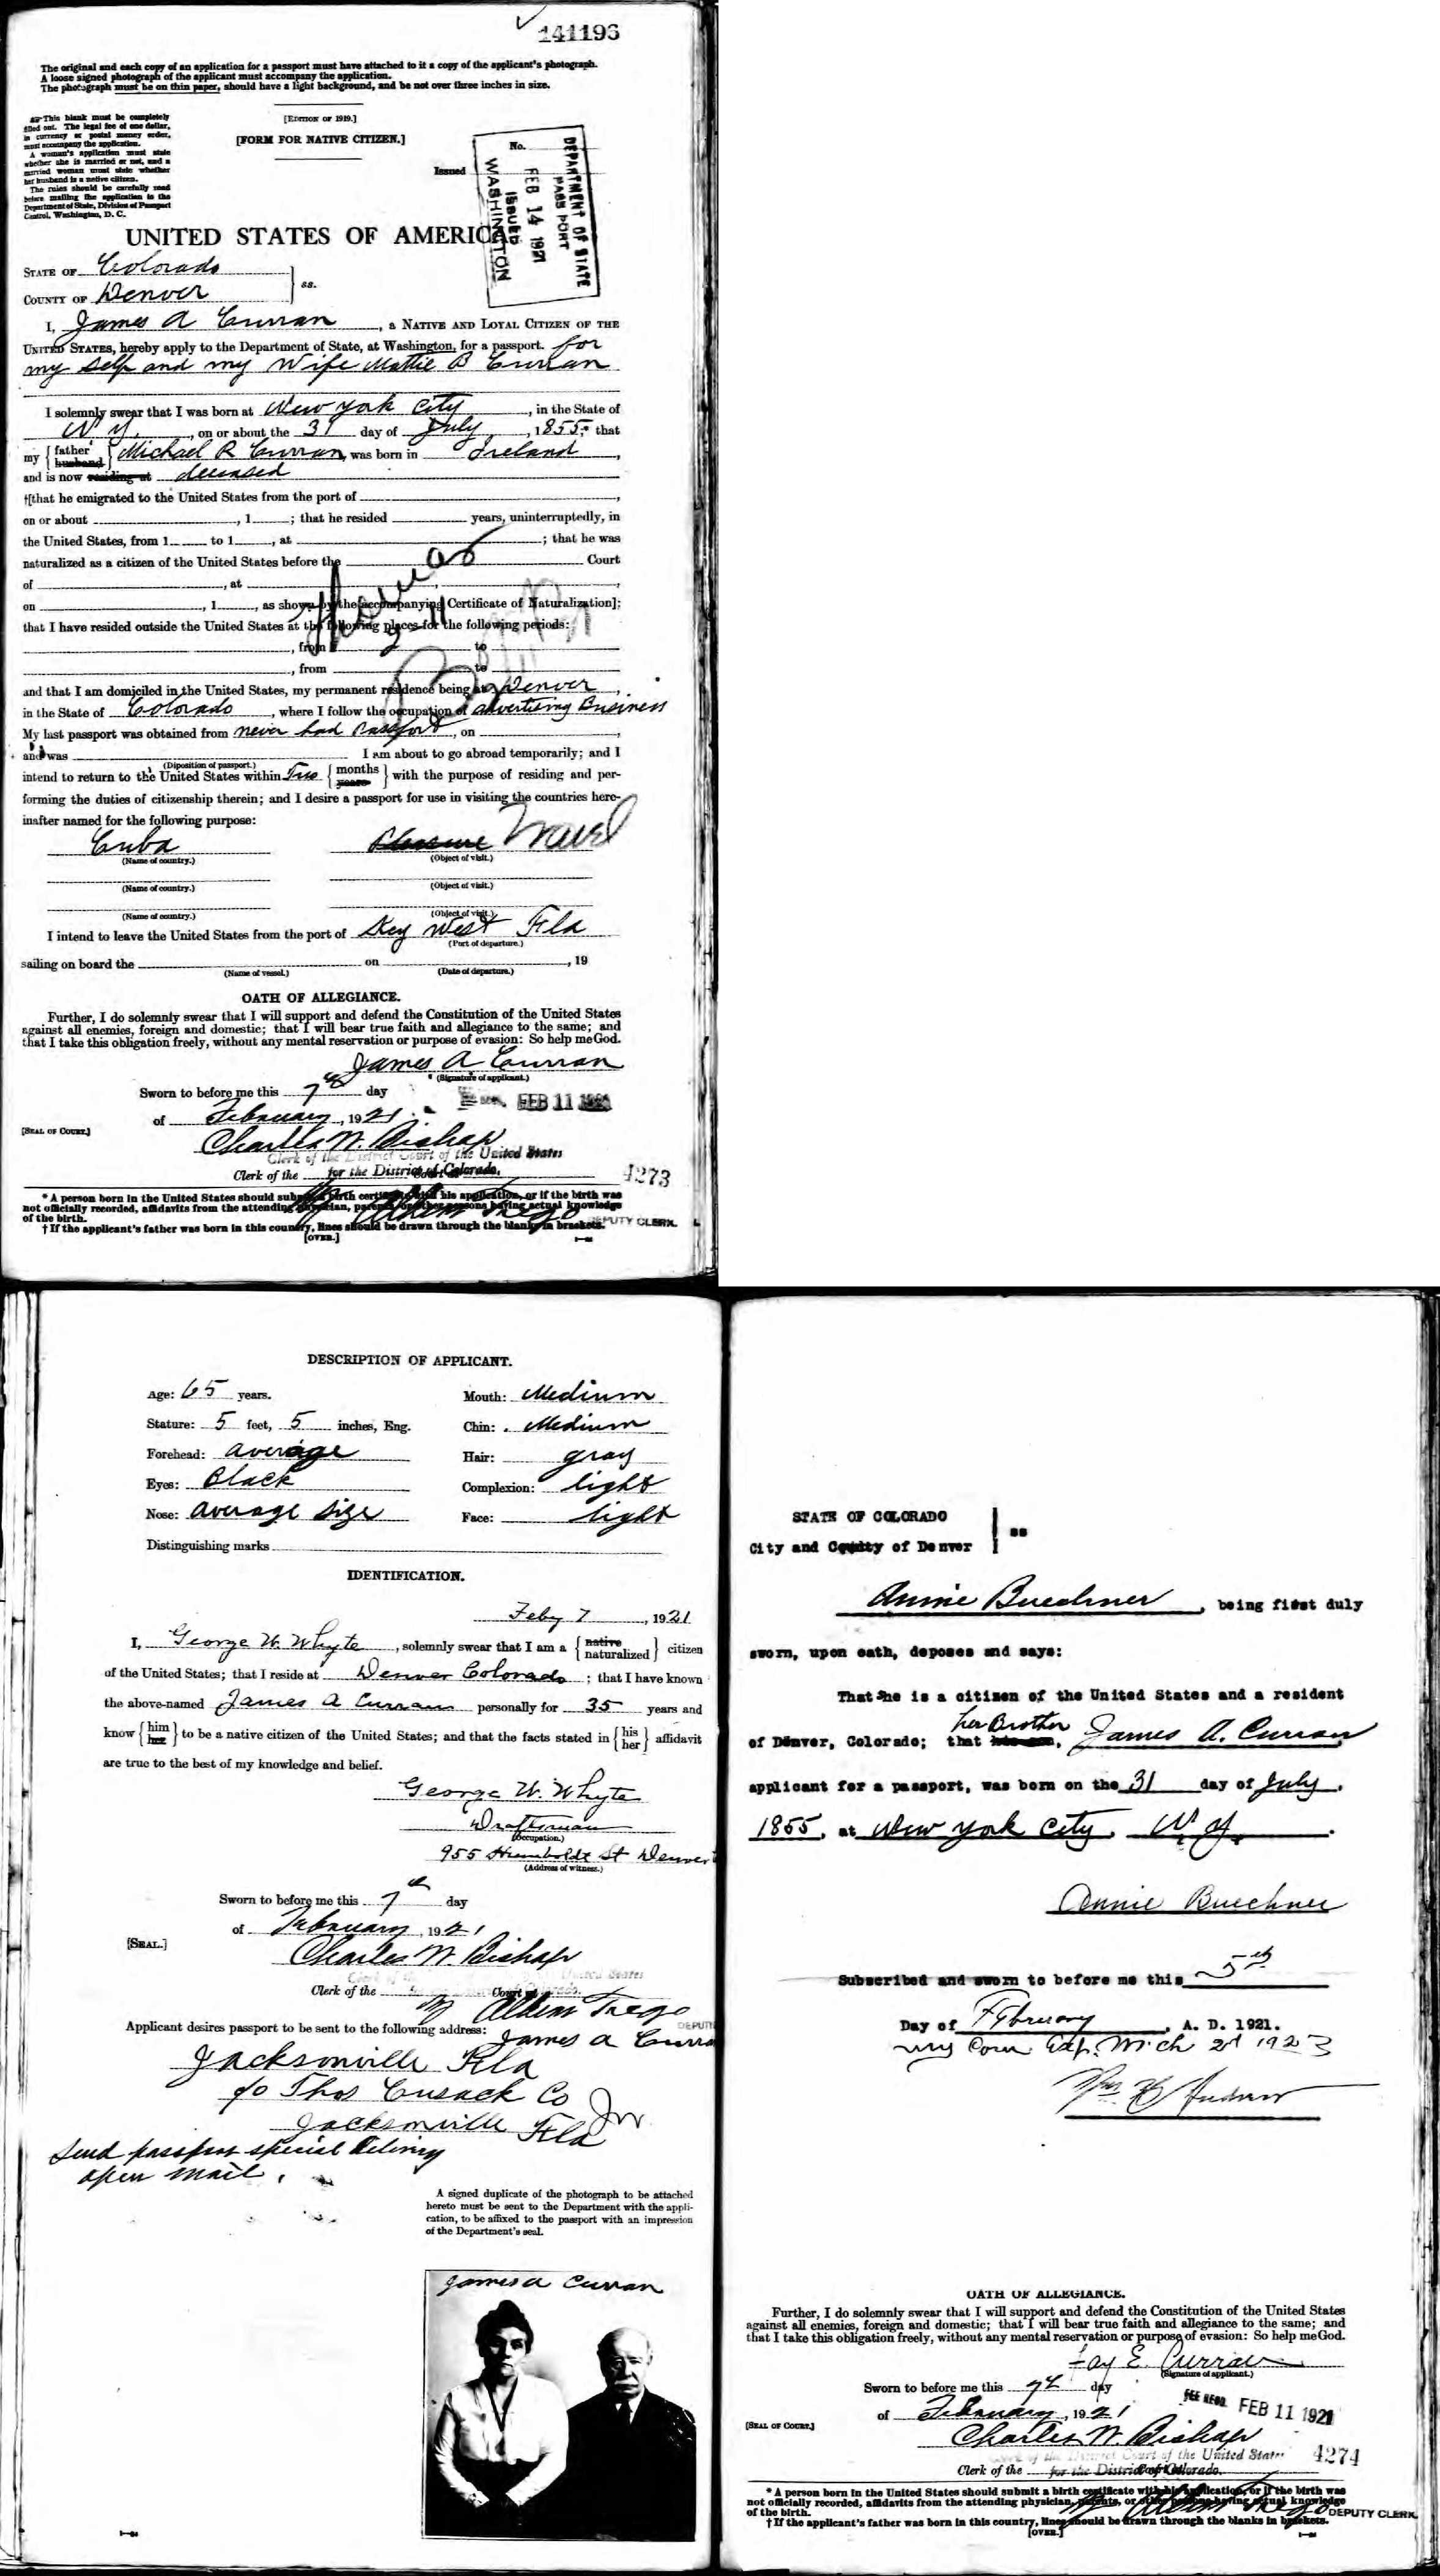 141196
The original and each copy of an application for a passport must have attached to it a copy of the applicant's photograph.
A loose signed photograph of the applicant must accompany the application.
The photograph must be on thin paper, should have a light background, and be not over three inches in size.
This blank must be completely
filled out. The legal fee of one dollar,
in currency or postal money order,
must accompany the application.
A woman's application must state
whether she is married or not, and a
married woman must state whether
her husband is a native citizen.
The rules should be carefully read
before mailing the application to the
Department of State, Division of Passport
Control, Washington, D. C.
[EDITION OF 1919.]
[FORM FOR NATIVE CITIZEN.]
No.
Issued
DEPARTMENT OF STATE
PASSPORT
FEB 14 1921
ISSUED
WASHINGTON
UNITED STATES OF AMERICA
STATE OF Colorado
COUNTY OF Denver
ss.
I, James A Curran, a NATIVE AND LOYAL CITIZEN OF THE
UNITED STATES, hereby apply to the Department of State, at Washington, for a passport. for
my self and my Wife Mattie B Curran
I solemnly swear that I was born at New York City, in the State of
N.Y., on or about the 31 day of July, 1855,* that
my {father husband} Michael R Curran, was born in Ireland,
and is now residing at deceased
†[that he emigrated to the United States from the port of
on or about , 1 ; that he resided years, uninterruptedly, in
the United States, from 1 to 1 , at ; that he was
naturalized as a citizen of the United States before the Court
of , at ,
on , 1 , as shown by the accompanying Certificate of Naturalization];
that I have resided outside the United States at the following places for the following periods:
, from to
, from to
and that I am domiciled in the United States, my permanent residence being at Denver,
in the State of Colorado, where I follow the occupation of advertising Business
My last passport was obtained from never had Passport, on ,
and was I am about to go abroad temporarily; and I
(Diposition of passport.)
intend to return to the United States within Two {months years} with the purpose of residing and per-
forming the duties of citizenship therein; and I desire a passport for use in visiting the countries here-
inafter named for the following purpose:
Cuba Pleasure Travel
(Name of country.) (Object of visit.)
(Name of country.) (Object of visit.)
(Name of country.) (Object of visit.)
I intend to leave the United States from the port of Key West Fla
(Port of departure.)
sailing on board the on , 19
(Name of vessel.) (Date of departure.)
OATH OF ALLEGIANCE.
Further, I do solemnly swear that I will support and defend the Constitution of the United States
against all enemies, foreign and domestic; that I will bear true faith and allegiance to the same; and
that I take this obligation freely, without any mental reservation or purpose of evasion: So help me God.
James A Curran
(Signature of applicant.)
Sworn to before me this 7th day
FEB 11 1921
of February, 1921
[SEAL OF COURT.]
Charles W. Bishop
Clerk of the District Court of the United States
Clerk of the for the District of Colorado.
4273
* A person born in the United States should submit a birth certificate with his application, or if the birth was
not officially recorded, affidavits from the attending physician, parents, or other persons having actual knowledge
of the birth.
DEPUTY CLERK.
† If the applicant's father was born in this country, lines should be drawn through the blanks in brackets.
[OVER.]
DESCRIPTION OF APPLICANT.
Age: 65 years. Mouth: Medium
Stature: 5 feet, 5 inches, Eng. Chin: Medium
Forehead: average Hair: gray
Eyes: Black Complexion: light
Nose: average size Face: light
Distinguishing marks
IDENTIFICATION.
Feby 7, 1921
I, George W. Whyte, solemnly swear that I am a {native naturalized} citizen
of the United States; that I reside at Denver Colorado; that I have known
the above-named James A Curran personally for 35 years and
know {him her} to be a native citizen of the United States; and that the facts stated in {his her} affidavit
are true to the best of my knowledge and belief.
George W. Whyte
Draftsman
(Occupation.)
955 Humboldt St Denver
(Address of witness.)
Sworn to before me this 7th day
of February, 1921
[SEAL.]
Charles W. Bishop
Clerk of the Court
DEPUTY
Applicant desires passport to be sent to the following address:
James A Curra
Jacksonville Fla
c/o Thos Cusack Co
Jacksonville Fla
Send passport special delivery
open mail.
A signed duplicate of the photograph to be attached
hereto must be sent to the Department with the appli-
cation, to be affixed to the passport with an impression
of the Department's seal.
James A Curran
STATE OF COLORADO
ss
City and County of Denver
Annie Buechner, being first duly
sworn, upon oath, deposes and says:
That she is a citizen of the United States and a resident
her Brother
of Denver, Colorado; that his son, James A. Curran
applicant for a passport, was born on the 31 day of July,
1855, at New York City, N.Y.
Annie Buechner
Subscribed and sworn to before me this 5th
Day of February, A. D. 1921.
My Com Exp. Mich 2d 1923
OATH OF ALLEGIANCE.
Further, I do solemnly swear that I will support and defend the Constitution of the United States
against all enemies, foreign and domestic; that I will bear true faith and allegiance to the same; and
that I take this obligation freely, without any mental reservation or purpose of evasion: So help me God.
Fay E. Curran
(Signature of applicant.)
Sworn to before me this 7th day
FEE RECD. FEB 11 1921
of February, 1921
[SEAL OF COURT.]
Charles W. Bishop
Clerk of the District Court of the United States
Clerk of the for the District of Colorado.
4274
* A person born in the United States should submit a birth certificate with his application, or if the birth was
not officially recorded, affidavits from the attending physician, parents, or other persons having actual knowledge
of the birth.
DEPUTY CLERK.
† If the applicant's father was born in this country, lines should be drawn through the blanks in brackets.
[OVER.]